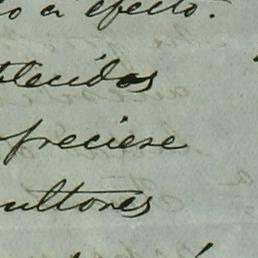 o a efecto.
blecidos
freciese
cultores